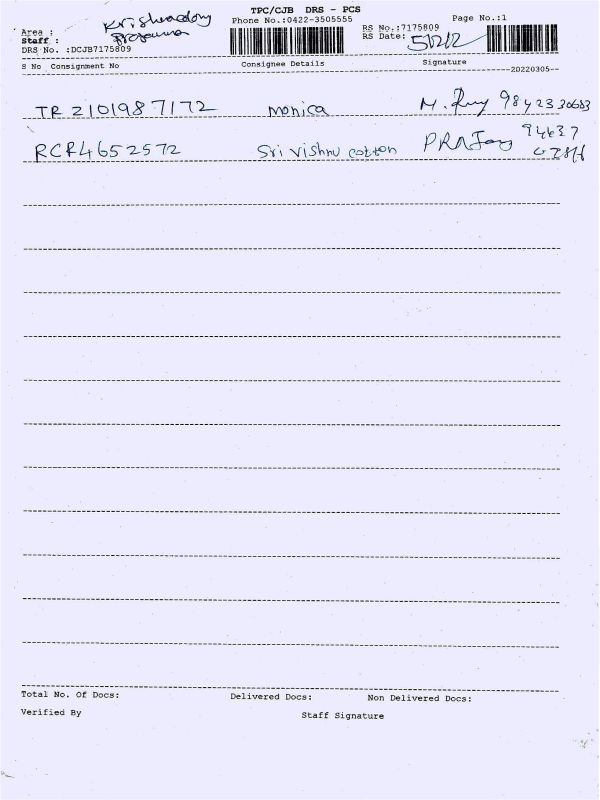 TPC/CJB DRS - PCS
Phone No.:0422-3505555
Page No.:1
Area :
Staff :
Prasanna
DRS No. :DCJB7175809
RS No.:7175809
RS Date:
S No Consignment No Consignee Details Signature
20220305
TR 2101987172 monica
RCR4652572 Sri vishnu cotton
Total No. Of Docs: Delivered Docs: Non Delivered Docs:
Verified By Staff Signature